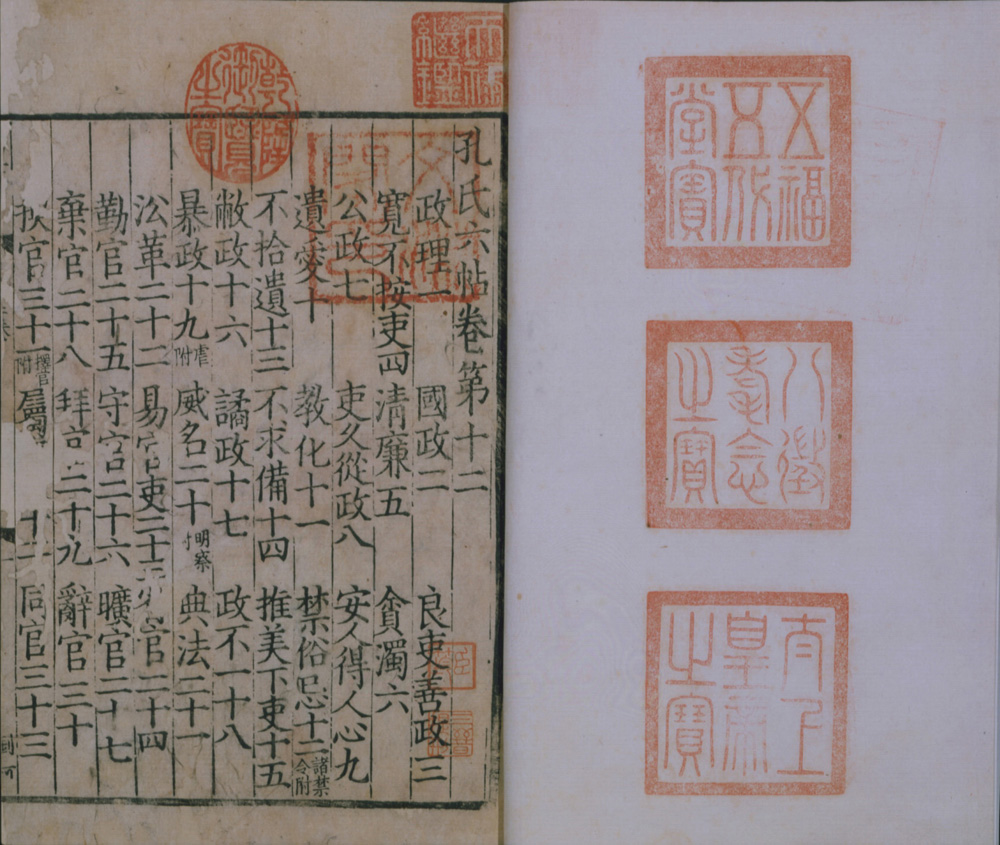 五福
五代
堂寶
八徵
耄念
之寶
太上
皇帝
之寶
天祿
繼鑑
乾隆
御覽
之寶
孔氏六帖卷第十二
政理一 國政二 良吏善政三
寬不按吏四 清廉五 貪濁六
公政七 吏久從政八 安人得人心九
遺愛十 教化十一 禁俗忌十二 諸禁令附
不拾遺十三 不求備十四 推美下吏十五
敝政十六 譎政十七 政不一十八
暴政十九 虐附 威名二十 明察 典法二十一
沿革二十二 易官吏二十三 官二十四
勤官二十五 守官二十六 曠官二十七
棄官二十八 拜官二十九 辭官三十
官三十一 擇官附 同官三十三